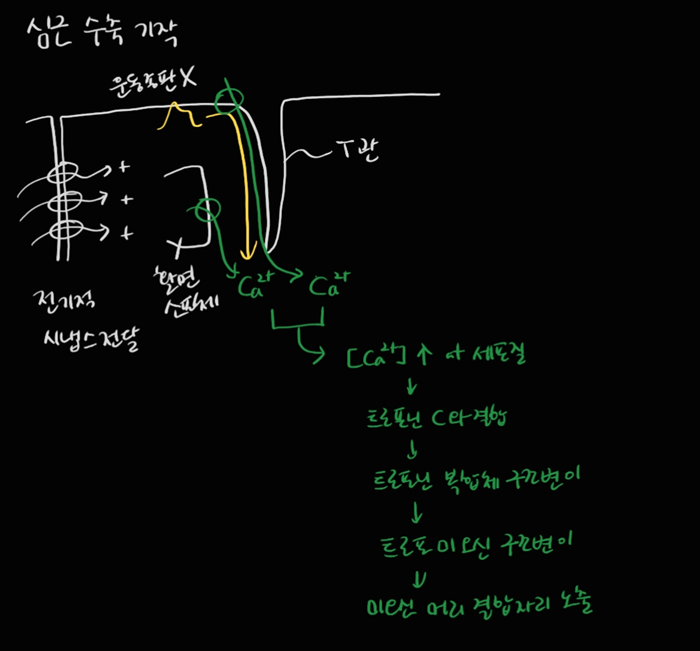 심근 수축 기작
운동종판 X
T관
+
+
+
활면
소포체
전기적
시냅스 전달
Ca²⁺ Ca²⁺
[Ca²⁺] ↑ in 세포질
↓
트로포닌 C와 결합
↓
트로포닌 복합체 구조변이
↓
트로포미오신 구조변이
↓
미오신 머리 결합자리 노출